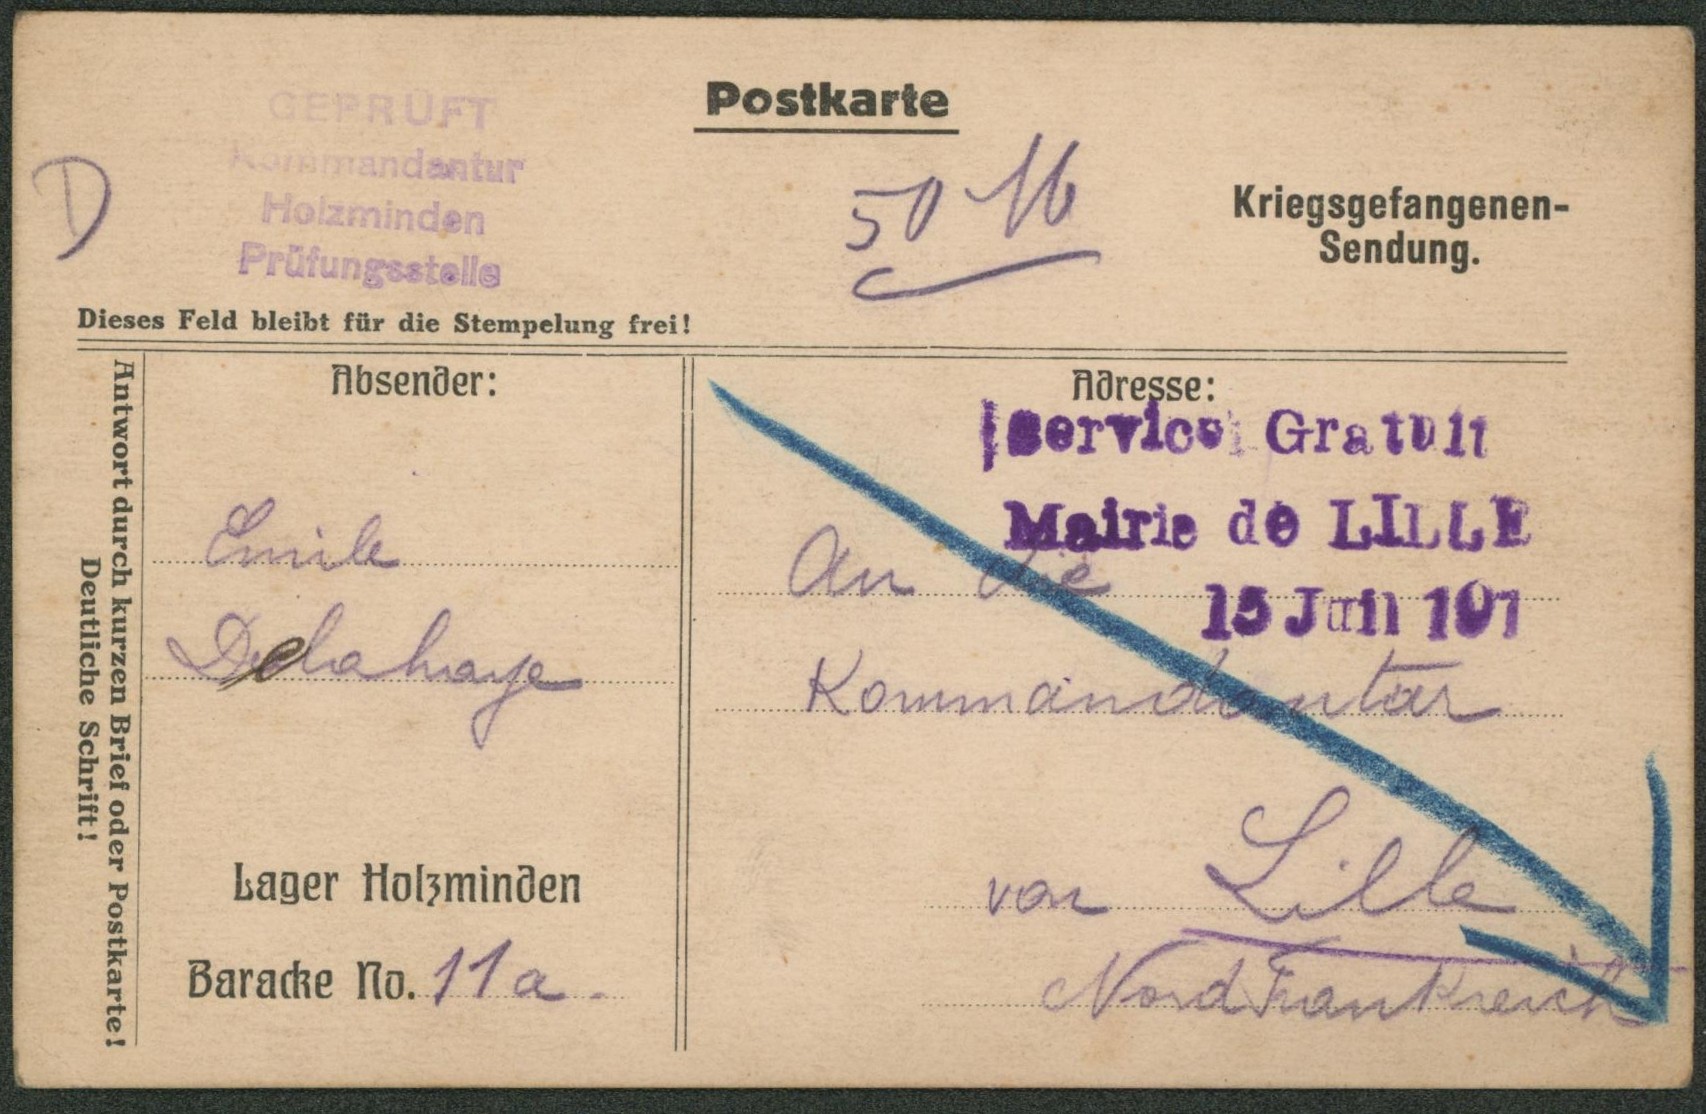 Postkarte
GEPRÜFT
Kommandantur
Holzminden
Prüfungsstelle
D
50 M
Kriegsgefangenen-
Sendung.
Dieses Feld bleibt für die Stempelung frei!
Antwort durch kurzen Brief oder Postkarte!
Deutliche Schrift!
Absender:
Emile
Delahaye
Lager Holzminden
Baracke No. 11a.
Adresse:
Service Gratuit
Mairie de LILLE
15 Juil 191
An die
Kommandantur
von Lille
Nord Frankreich